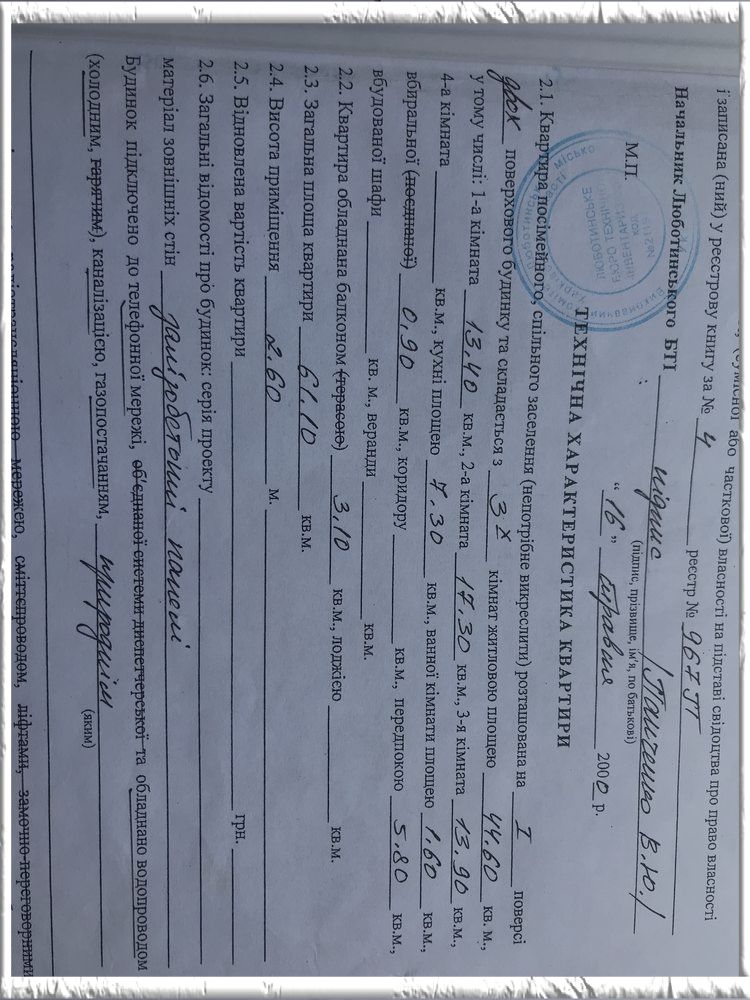 (сумісної або часткової) власності на підставі свідоцтва про право власності
і записана (ний) у реєстрову книгу за № 4 реєстр № 967 П
Начальник Люботинського БТІ підпис /Панченко В.Ю./
(підпис, прізвище, ім'я, по батькові)
М.П. “16” травня 2000 р.
ТЕХНІЧНА ХАРАКТЕРИСТИКА КВАРТИРИ
2.1. Квартира посімейного, спільного заселення (непотрібне викреслити) розташована на I поверсі
двох поверхового будинку та складається з 3х кімнат житловою площею 44.60 кв. м.,
у тому числі: 1-а кімната 13,40 кв.м., 2-а кімната 17.30 кв.м., 3-я кімната 13.90 кв.м.,
4-а кімната кв.м., кухні площею 7.30 кв.м., ванної кімнати площею 1.60 кв.м.,
вбиральної (поєднаної) 0,90 кв.м., коридору кв.м., передпокою 5.80 кв.м.,
вбудованої шафи кв. м., веранди кв.м.
2.2. Квартира обладнана балконом (терасою) 3,10 кв.м., лоджією кв.м.
2.3. Загальна площа квартири 61.10 кв.м.
2.4. Висота приміщення 2.60 м.
2.5. Відновлена вартість квартири грн.
2.6. Загальні відомості про будинок: серія проекту
матеріал зовнішніх стін залізобетонні панелі
Будинок підключено до телефонної мережі, об'єднаної системи диспетчерської та обладнано водопроводом
(холодним, гарячим), каналізацією, газопостачанням, природнім
(яким)
мережею, сміттєпроводом, ліфтами, замочно-переговорними